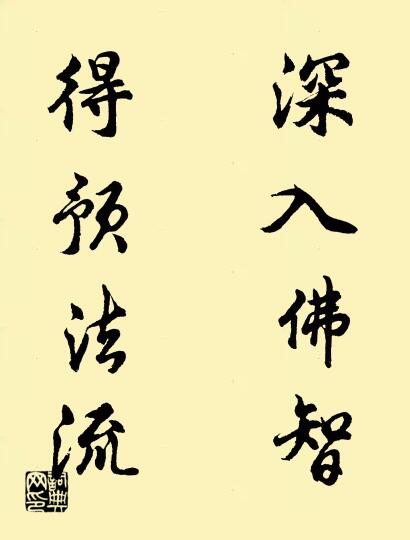 深入佛智
得預法流